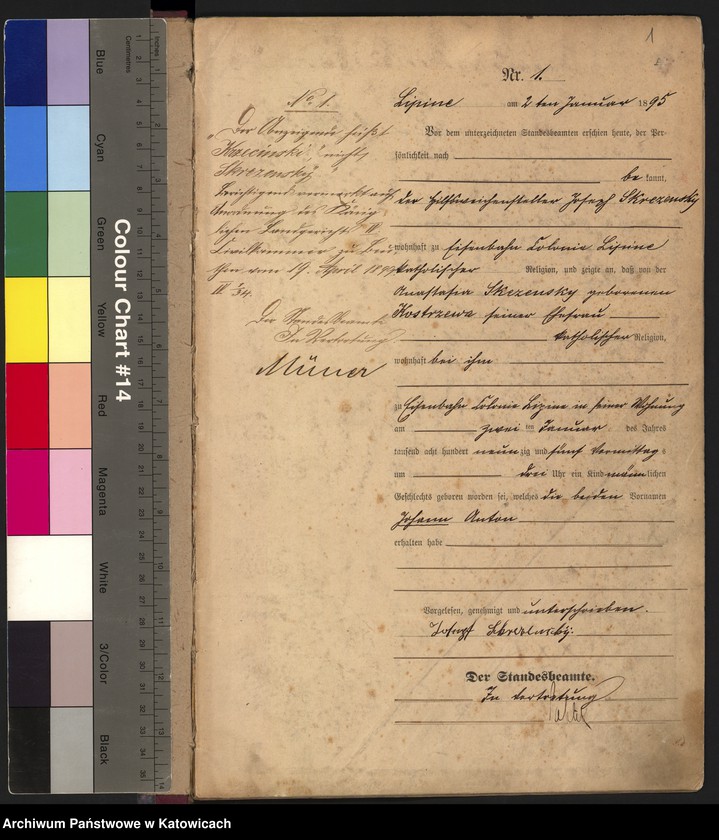 Blue
Cyan
Green
Yellow
Red
Magenta
White
3/Color
Black
Colour Chart #14
Centimetres
Inches
1
Nr. 1.
Lipine am 2 ten Januar 1895
Vor dem unterzeichneten Standesbeamten erschien heute, der Per-
sönlichkeit nach
be kannt,
der Hilfsweichensteller Joseph Skrzensky
wohnhaft zu Eisenbahn Colonie Lipine
katholischer Religion, und zeigte an, daß von der
Anastasia Skrzensky geborenen
Kostrzewa seiner Ehefrau
katholischer Religion,
wohnhaft bei ihm
zu Eisenbahn Colonie Lipine in seiner Wohnung
am zwei ten Januar des Jahres
tausend acht hundert neun zig und fünf Vormittags
um drei Uhr ein Kind männlichen
Geschlechts geboren worden sei, welches die beiden Vornamen
Johann Anton
erhalten habe
Vorgelesen, genehmigt und unterschrieben.
Josef Skrzensky.
Der Standesbeamte.
In Vertretung
No 1.
Der Anzeigende heißt
"nicht
Skrzensky"
Berichtigend vermerkt auf
Anordnung des König-
lichen Landgerichts IV.
Civilkammer zu Beu-
then vom 19. April
Der Standesbeamte
In Vertretung
Archiwum Państwowe w Katowicach